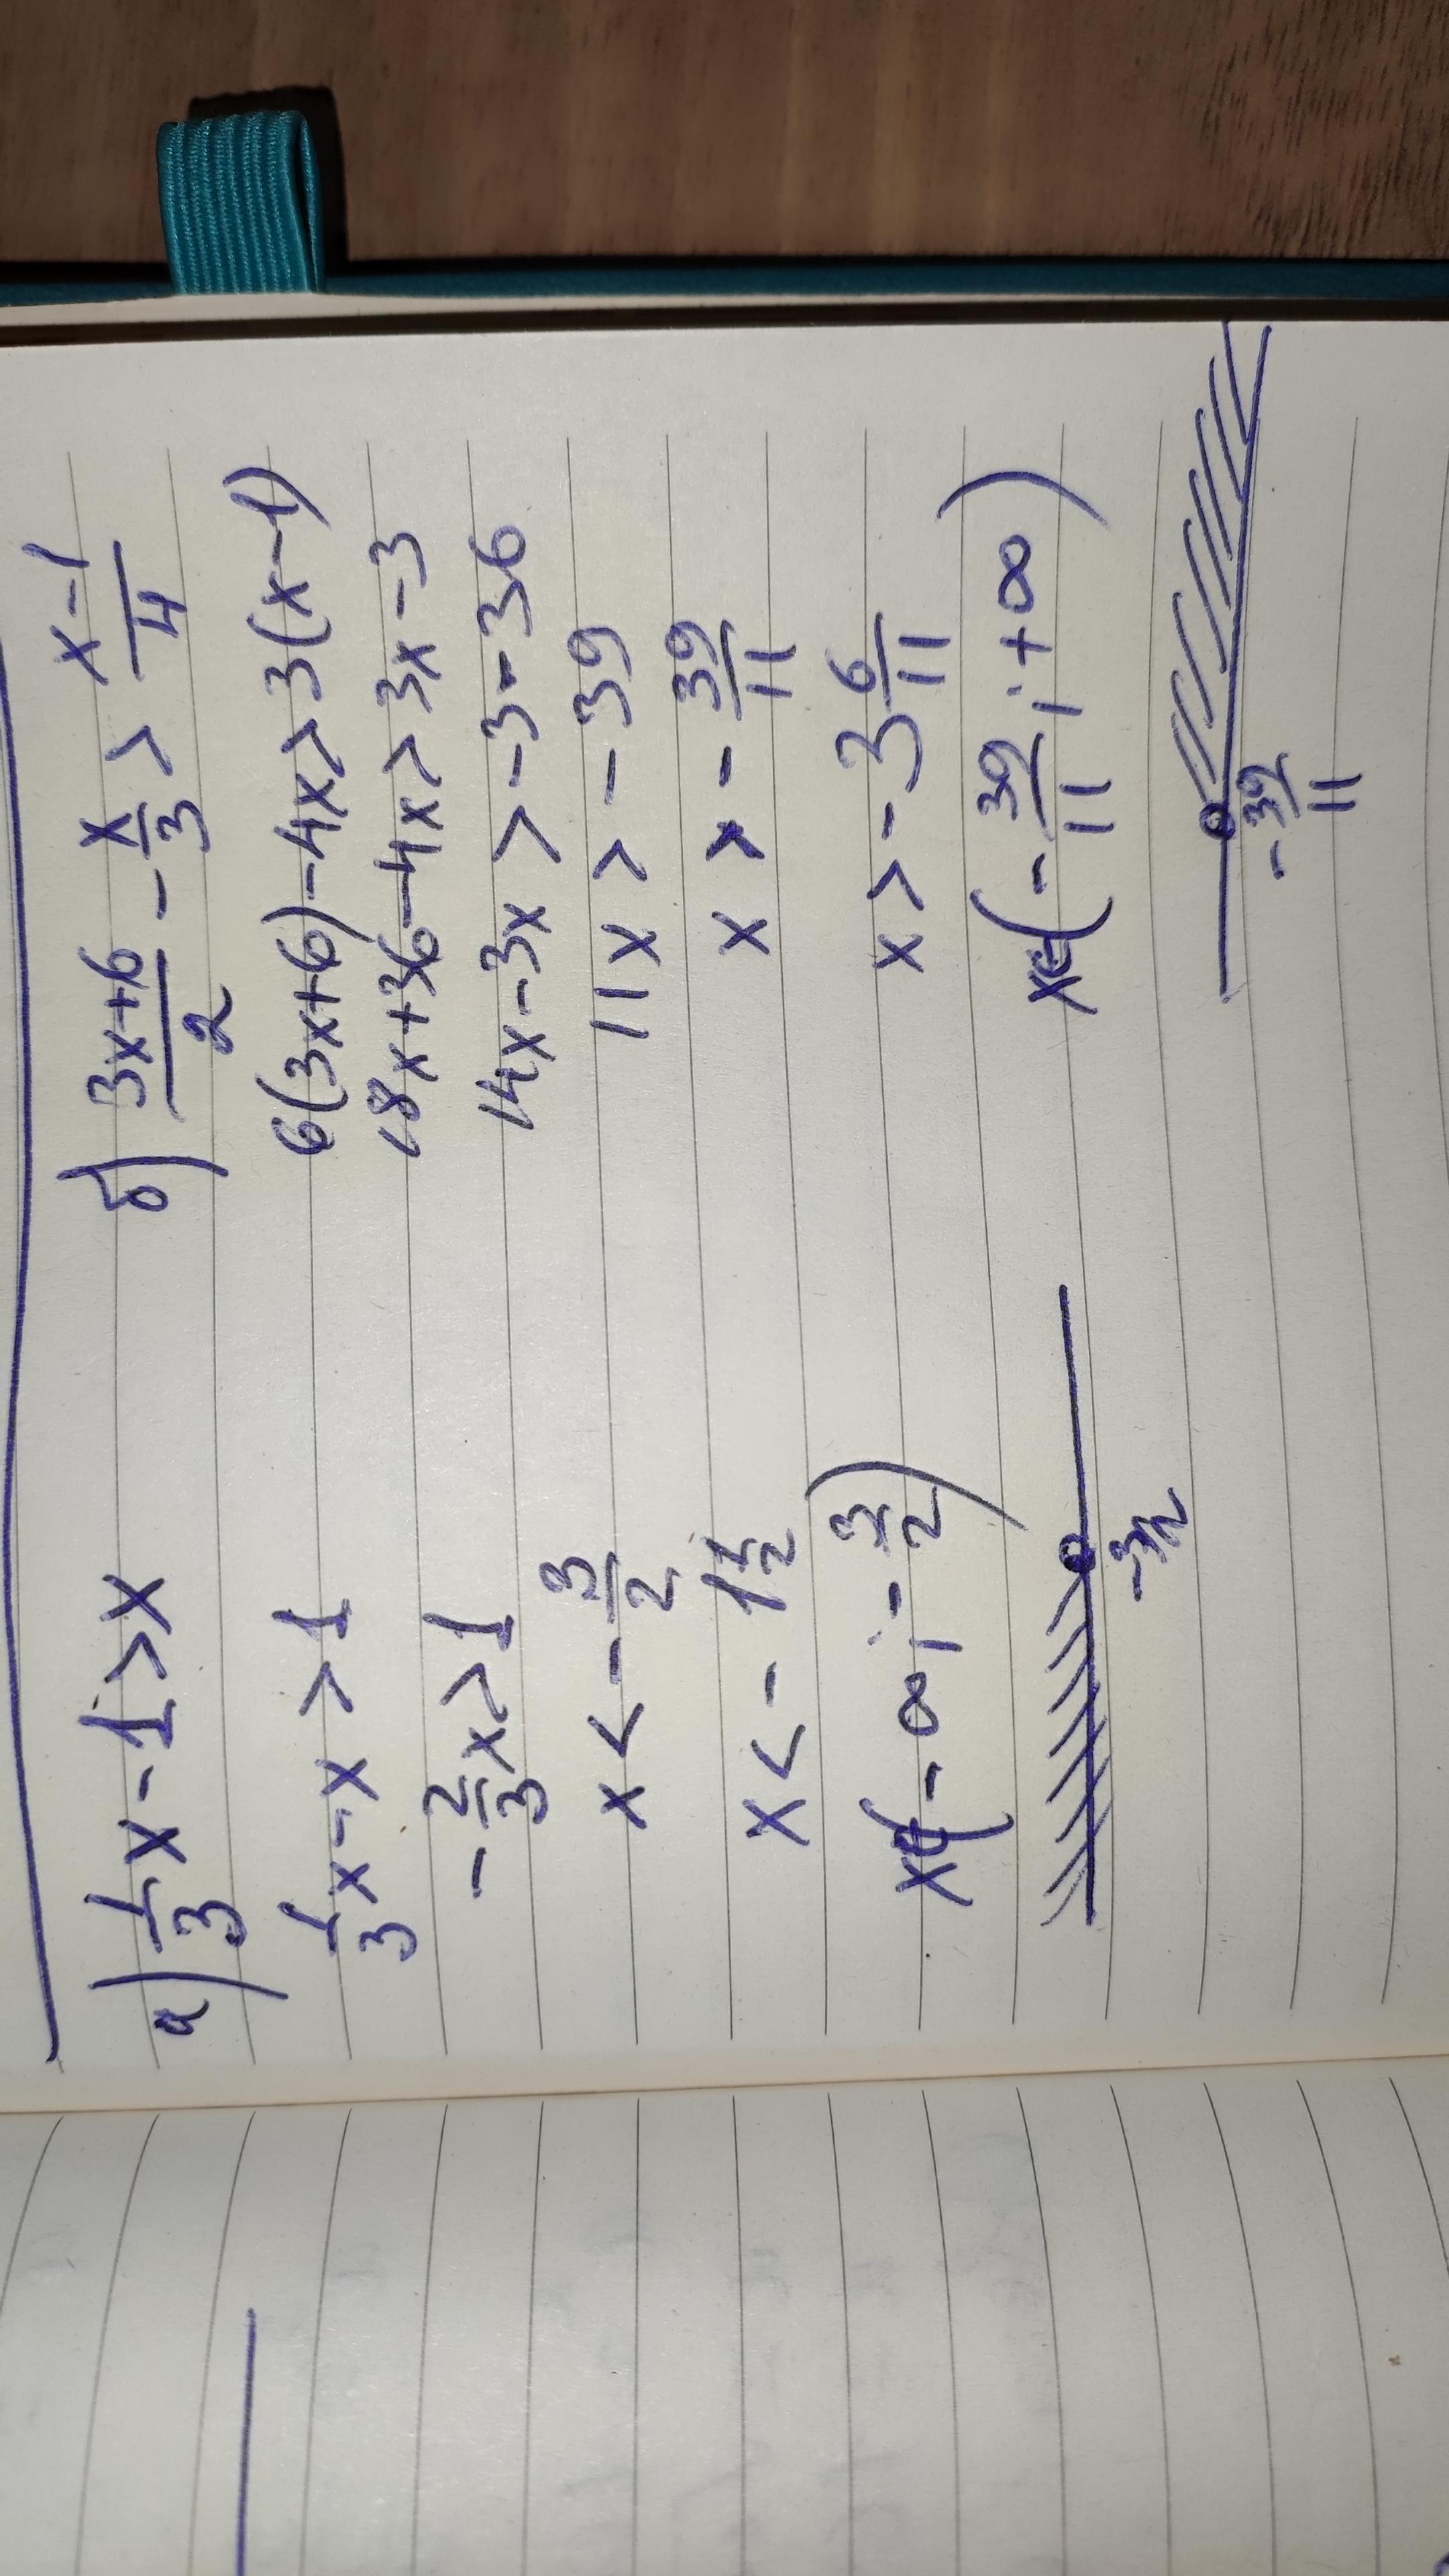 а) 1/3 x - 1 > x
1/3 x - x > 1
- 2/3 x > 1
x < - 3/2
x < - 1 1/2
x∈(-∞; - 3/2)
-3/2
б) (3x+6)/2 - x/3 > (x-1)/4
6(3x+6)-4x>3(x-1)
18x+36-4x>3x-3
14x-3x>-3-36
11x > -39
x > - 39/11
x > -3 6/11
x∈(- 39/11; +∞)
- 39/11